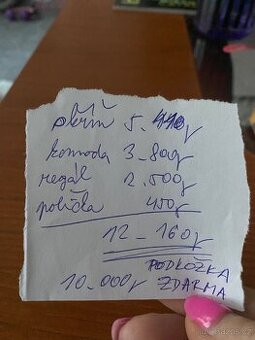 skříň 5.410,-
komoda 3-800,-
regál 2.500,-
polička 450,-
12-160,-
PODLOŽKA
10.000,- ZDARMA